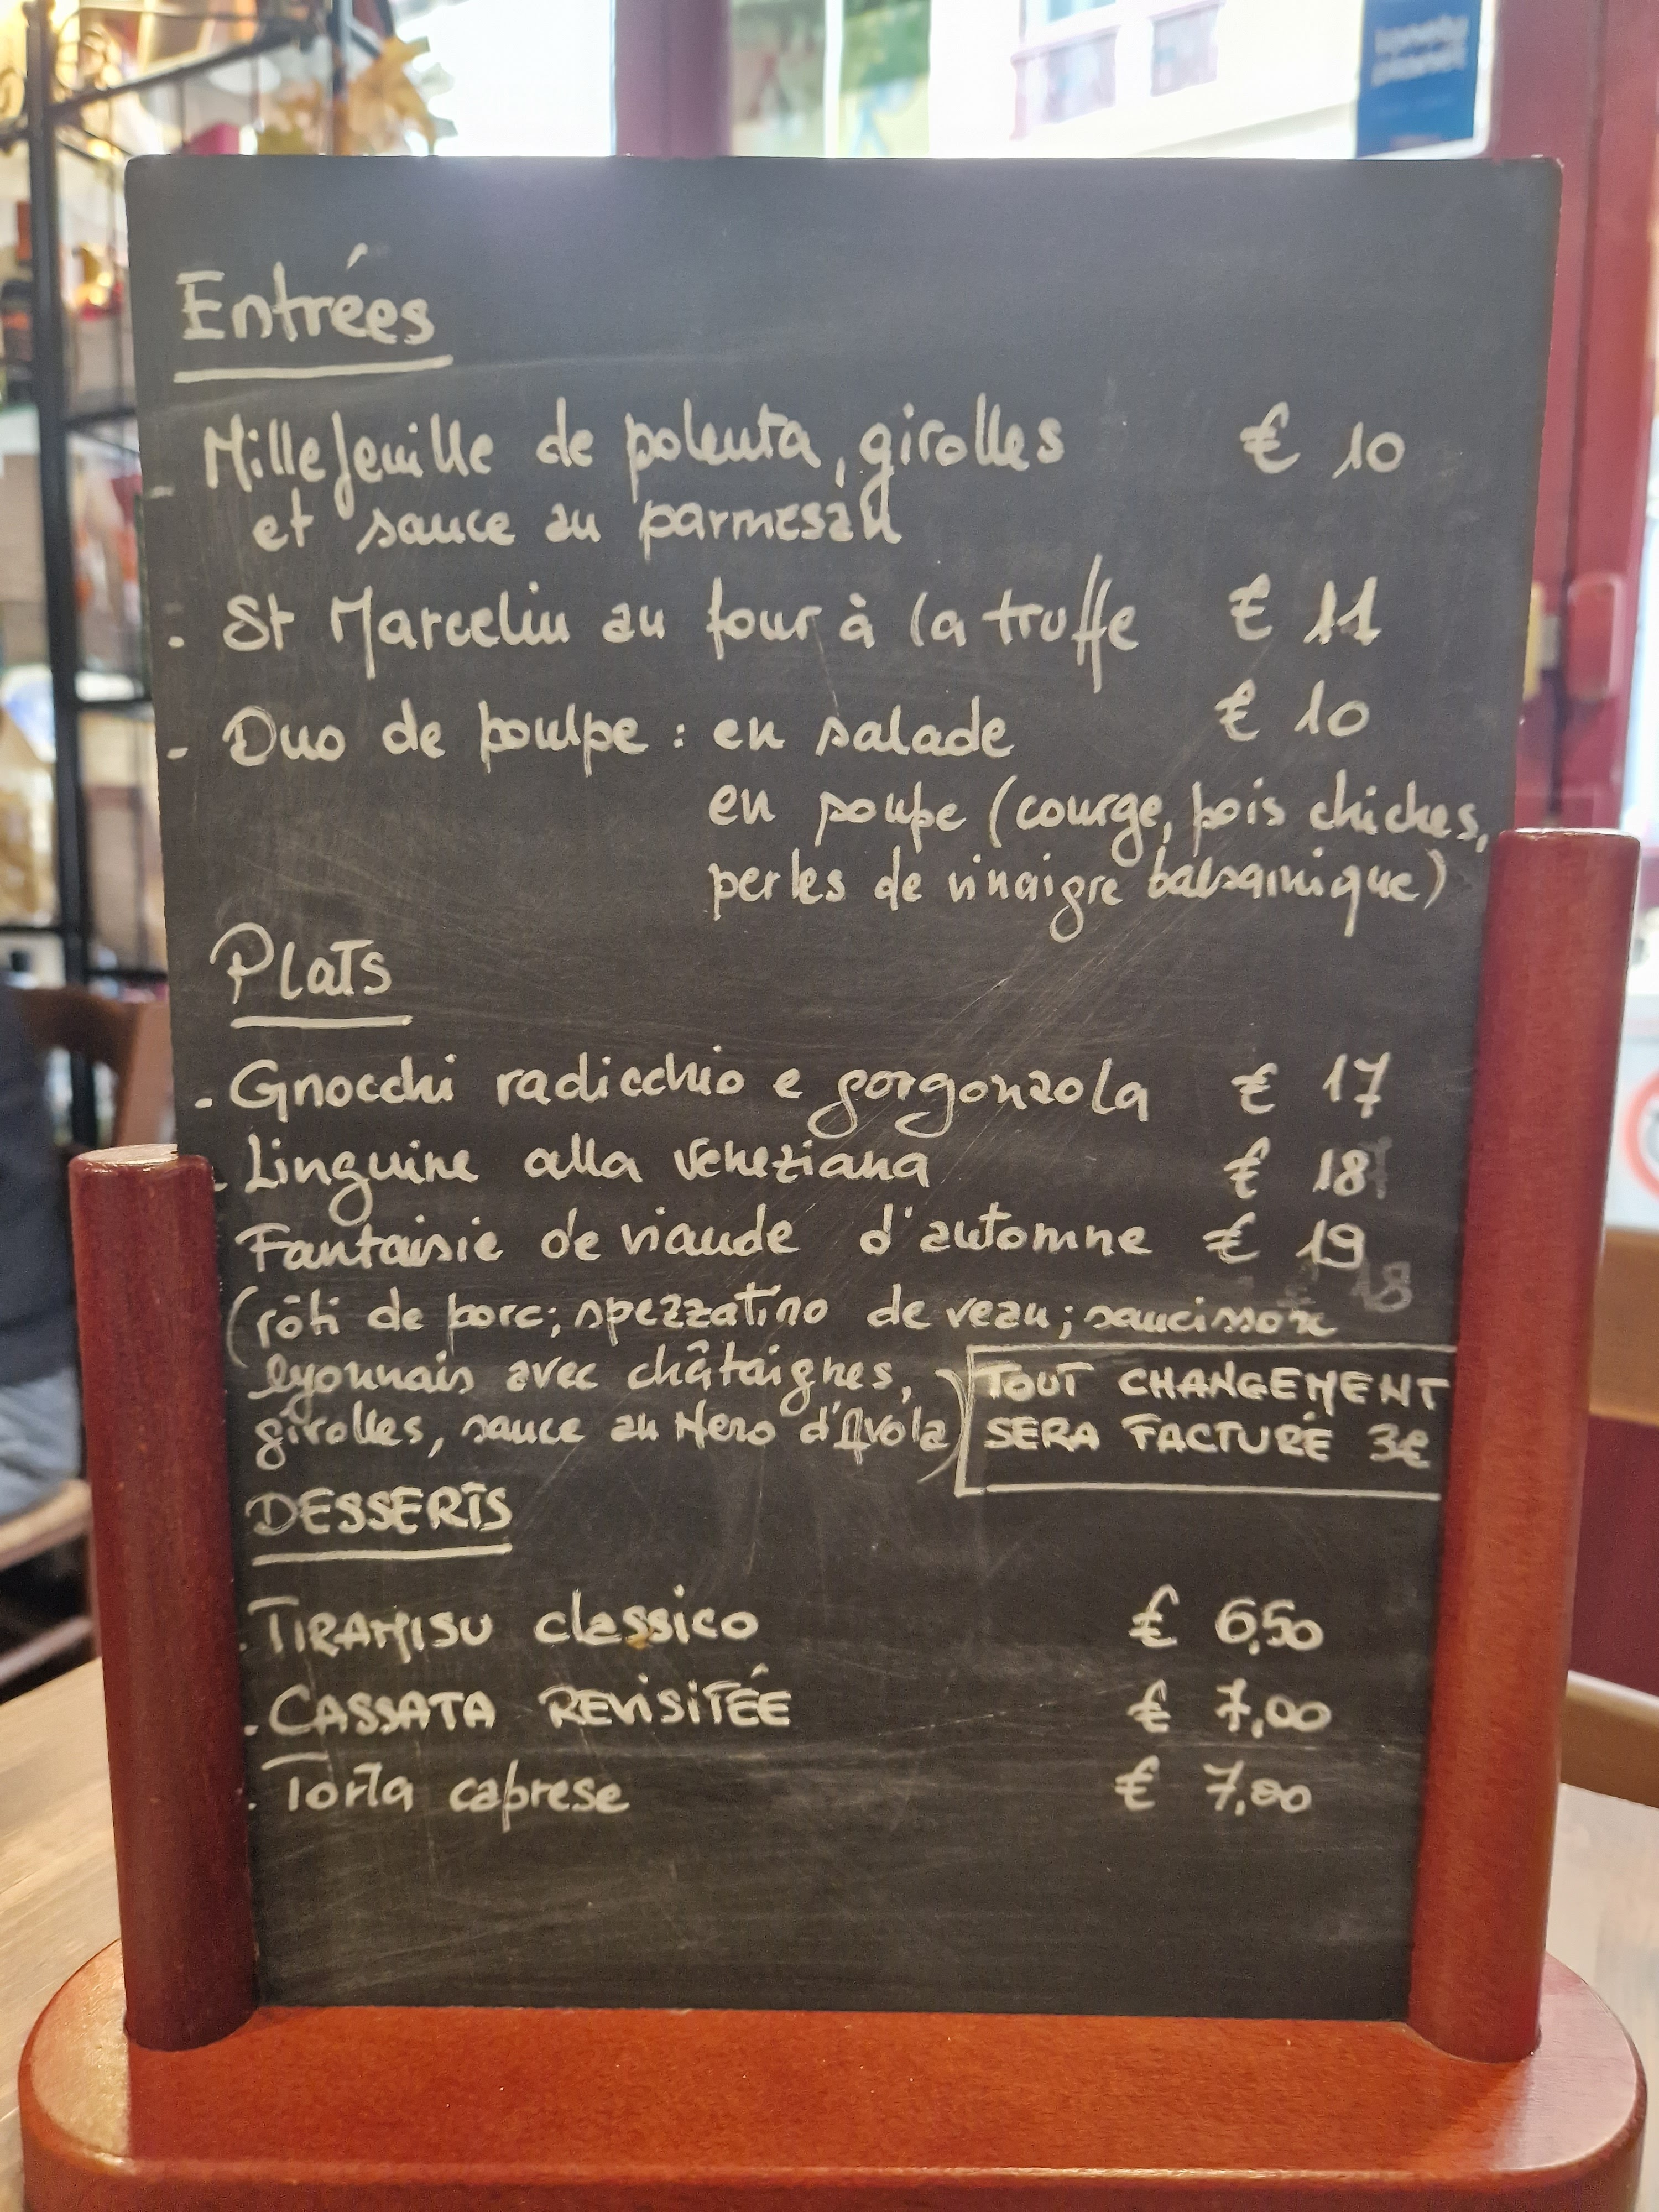 Entrées
- Millefeuille de polenta, girolles € 10
et sauce au parmesan
- St Marcelin au four à la truffe € 11
- Duo de poulpe : en salade € 10
en soupe (courge, pois chiches,
perles de vinaigre balsamique)
Plats
- Gnocchi radicchio e gorgonzola € 17
- Linguine alla veneziana € 18
Fantaisie de viande d'automne € 19
18
(rôti de porc; spezzatino de veau; saucisson
lyonnais avec châtaignes,
girolles, sauce au Nero d'Avola)
TOUT CHANGEMENT
SERA FACTURÉ 3€
DESSERTS
. TIRAMISU classico € 6,50
. CASSATA REVISITÉE € 7,00
. Torta caprese € 7,00
lonely
planet